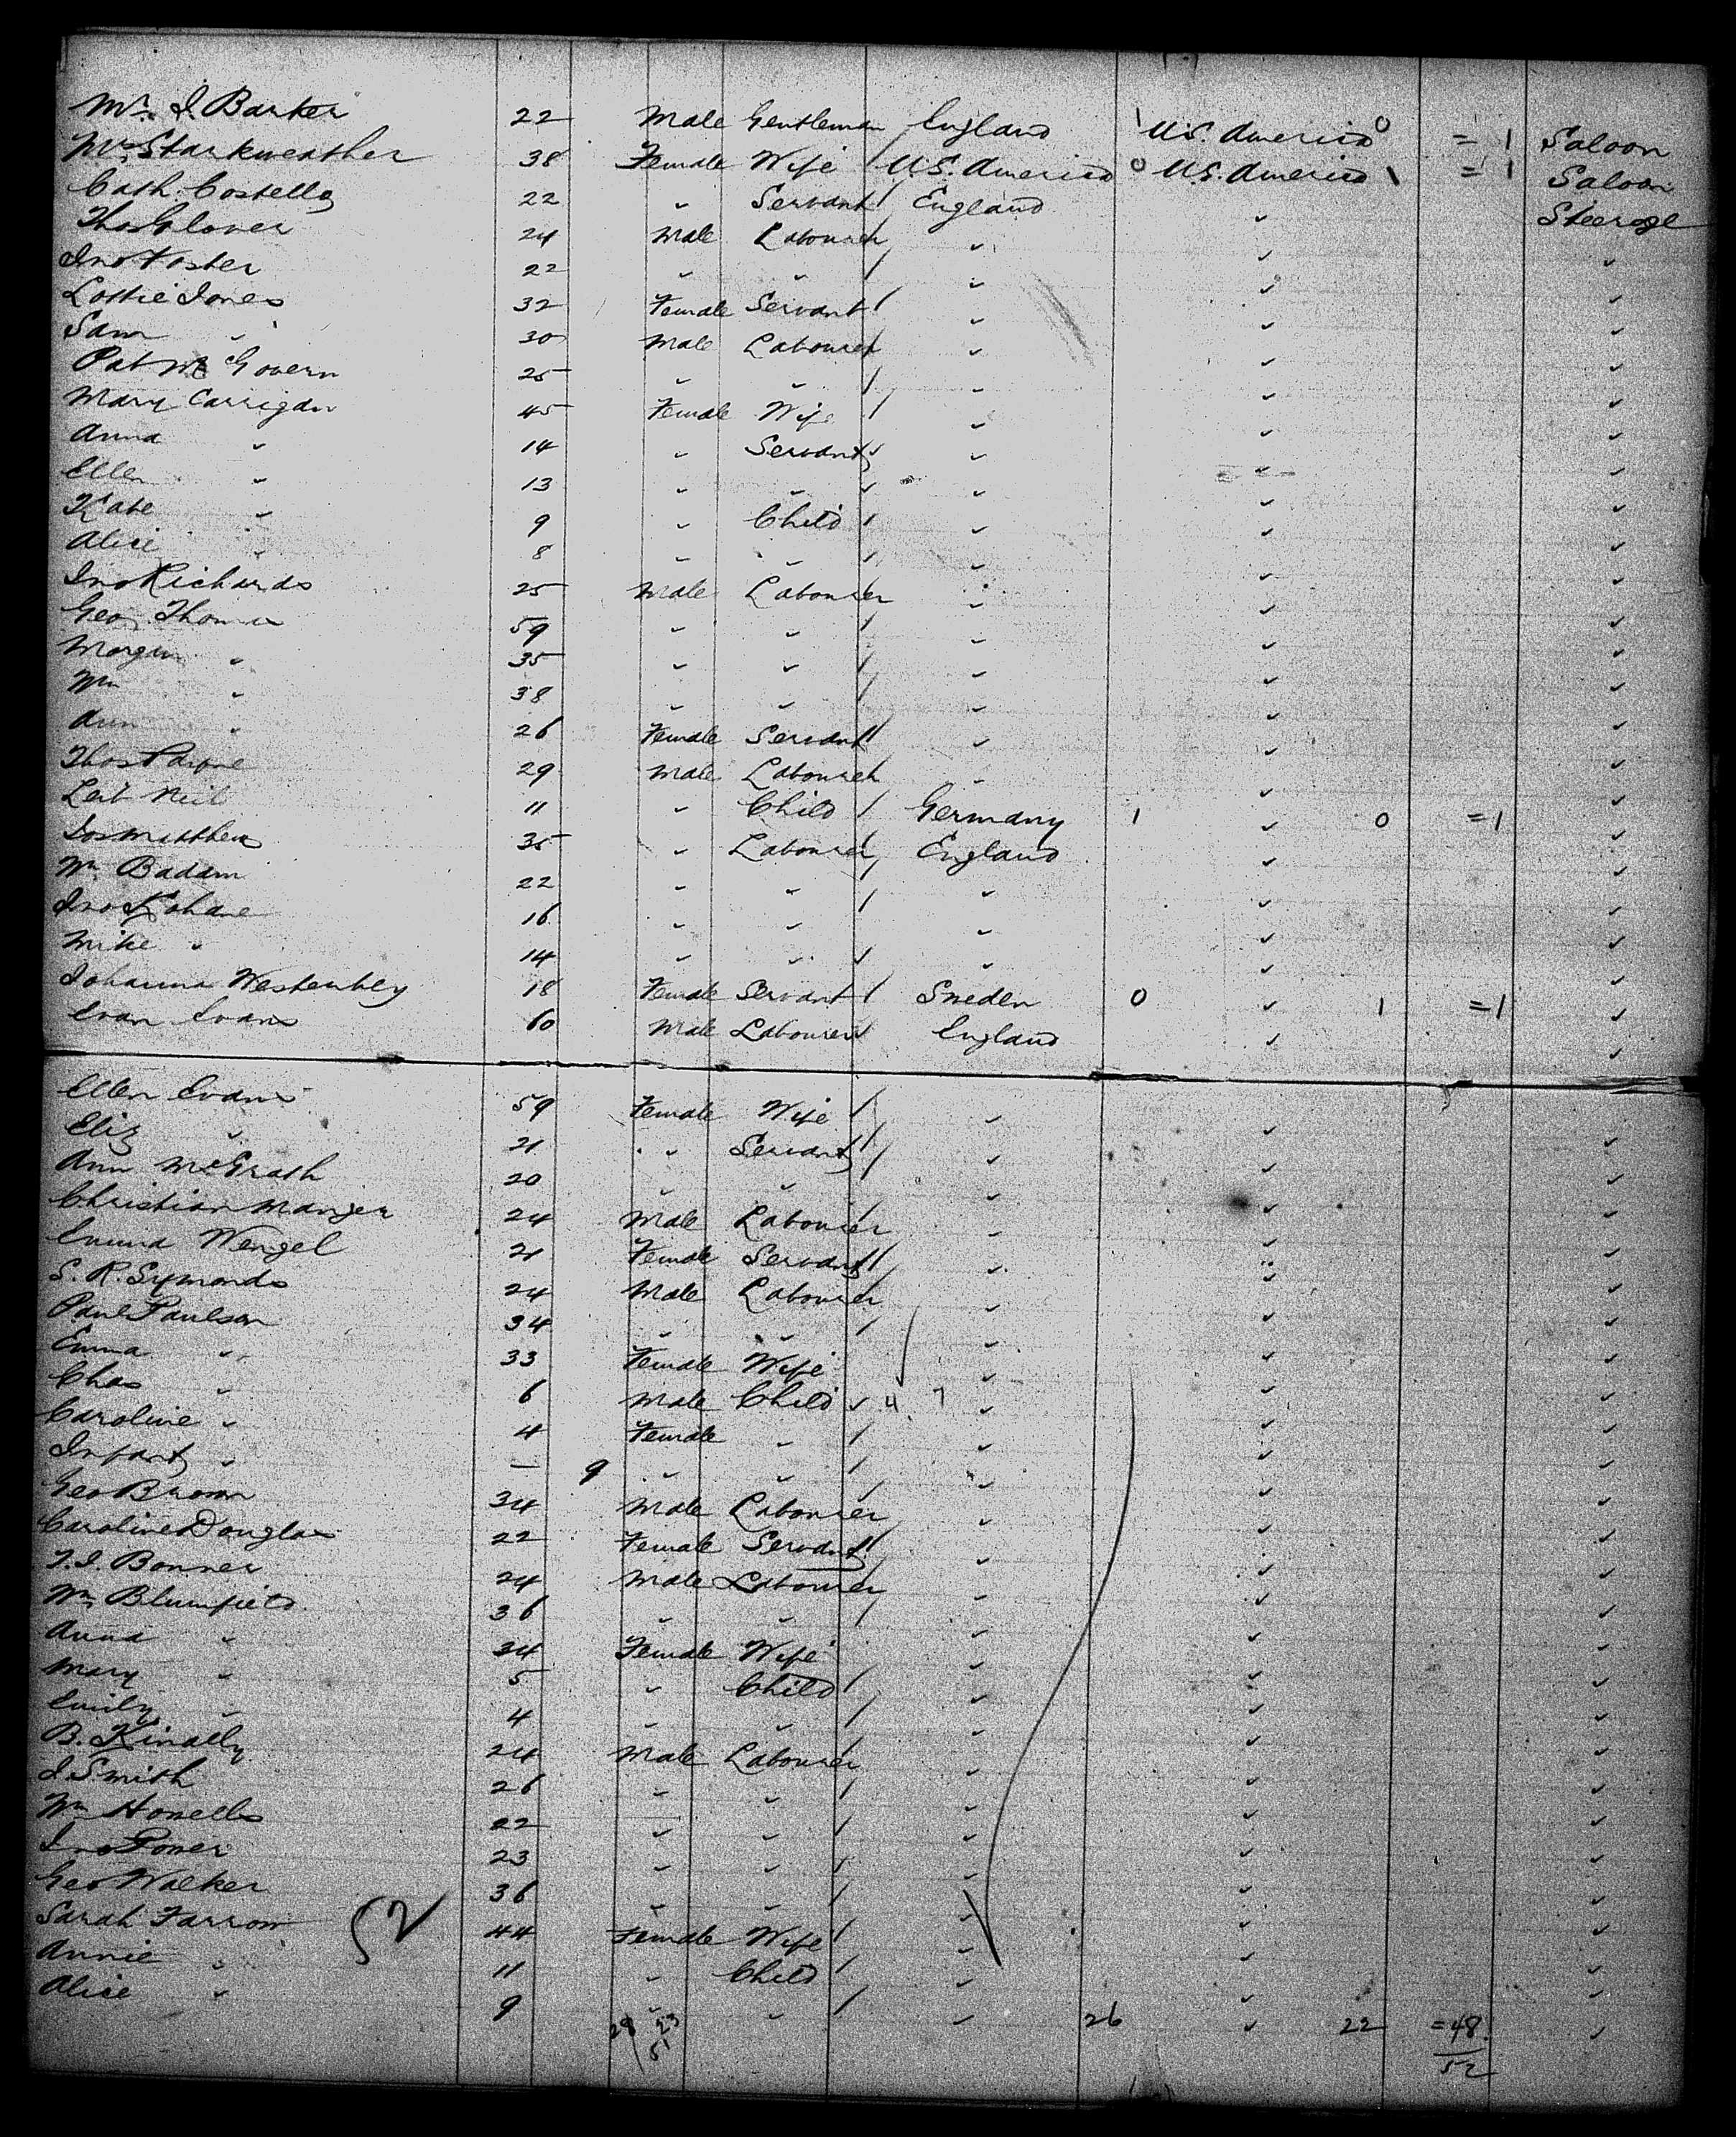 Mr. J. Barker 22 Male Gentleman England \ U.S. America 0 = 1 Saloon
Mrs Starkweather 38 Female Wife / U.S. America 0 U.S. America \ = 1 Saloon
Cath. Costello 22 " Servant / England " Steerage
Thos Glover 24 Male Labourer " " "
Jno Foster 22 " " / " " "
Lottie Jones 32 Female Servant / " " "
Sam " 30 Male Labourer " " "
Pat McGovern 25 " " / " " "
Mary Carrigan 45 Female Wife / " " "
Anna " 14 " Servant " " "
Ellen " 13 " " " " "
Kate " 9 " Child / " " "
Alice " 8 " " / " " "
Jno Richards 25 Male Labourer " " "
Geo. Thomas 59 " " / " " "
Morgan " 35 " " / " " "
Wm " 38 " " / " " "
Ann " 26 Female Servant / " " "
Thos Payne 29 Male Labourer " " "
Leib 11 " Child / Germany 1 " 0 = 1 "
Jos Matthews 35 " Labourer England " "
Wm Badam 22 " " / " " "
Jno Kohane 16 " " " " "
Mike " 14 " " " " "
Johanna Westenbley 18 Female Servant / Sweden 0 " 1 = 1 "
Evan Evans 60 Male Labourer England " "
Ellen Evans 59 Female Wife / " " "
Eliz " 21 " Servant / " " "
Ann McGrath 20 " " " " "
Christian Manger 24 Male Labourer " " "
Emma Wengel 21 Female Servant / " " "
S. R. Symonds 24 Male Labourer " " "
Paul Paulson 34 " " / " " "
Emma " 33 Female Wife " " "
Chas " 6 Male Child 4 7 " " "
Caroline " 4 Female " / " " "
Infant " — 9 " " / " " "
Geo Brown 34 Male Labourer " " "
Caroline Douglas 22 Female Servant / " " "
T. J. Bonner 24 Male Labourer " " "
Wm Blumfield 36 " " / " " "
Anna " 34 Female Wife " " "
Mary " 5 " Child / " " "
Emily " 4 " " / " " "
B. Kinally 24 Male Labourer " " "
J. Smith 26 " " / " " "
Wm Howells 22 " " / " " "
Jno Power 23 " " / " " "
Geo Walker 36 " " / " " "
Sarah Farrow 52 44 Female Wife / " " "
Annie " 11 " Child / " " "
Alice " 9 " " / " 26 " 22 = 48 "
28 23
51
52